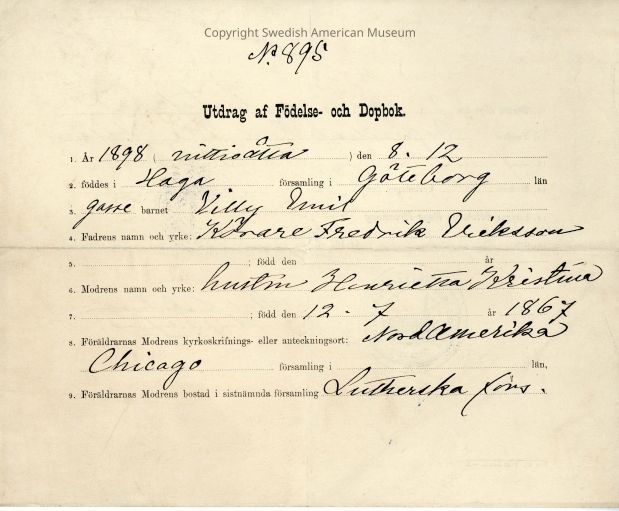 Copyright Swedish American Museum
No 895
Utdrag af Födelse- och Dopbok.
1. År 1898 ( nittioåtta ) den 8. 12
2. föddes i Haga församling i Göteborg län
3. gosse barnet Villy Emil
4. Fadrens namn och yrke: Körare Fredrik Eriksson
5. ; född den år
6. Modrens namn och yrke: hustru Henrietta Kristina
7. ; född den 12 - 7 år 1867
8. Föräldrarnas Modrens kyrkoskrifnings- eller anteckningsort: Nord Amerika
Chicago församling i län,
9. Föräldrarnas Modrens bostad i sistnämnda församling Lutherska förs.